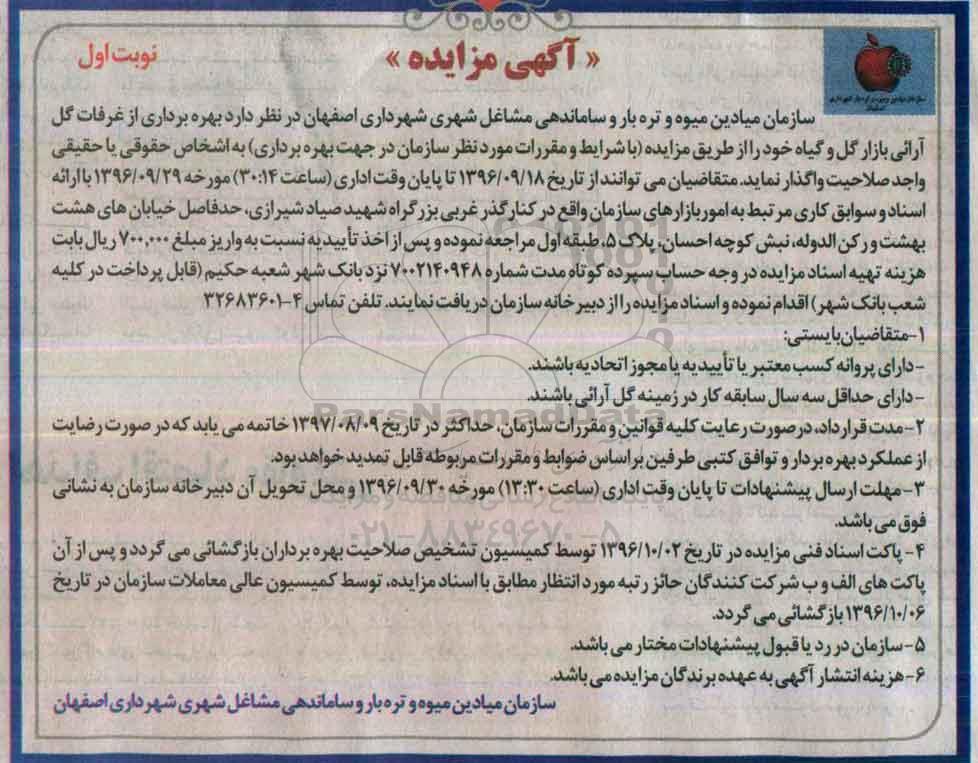 « آگهی مزایده »
نوبت اول
سازمان میادین میوه و تره بار و ساماندهی مشاغل شهری شهرداری اصفهان در نظر دارد بهره برداری از غرفات گل
آرائی بازار گل و گیاه خود را از طریق مزایده (با شرایط و مقررات مورد نظر سازمان در جهت بهره برداری) به اشخاص حقوقی یا حقیقی
واجد صلاحیت واگذار نماید. متقاضیان می توانند از تاریخ ۱۳۹۶/۰۹/۱۸ تا پایان وقت اداری (ساعت ۳۰:۱۴) مورخه ۱۳۹۶/۰۹/۲۹ با ارائه
اسناد و سوابق کاری مرتبط به امور بازارهای سازمان واقع در کنارگذر غربی بزرگراه شهید صیاد شیرازی، حدفاصل خیابان های هشت
بهشت و رکن الدوله، نبش کوچه احسان، پلاک ۵، طبقه اول مراجعه نموده و پس از اخذ تأییدیه نسبت به واریز مبلغ ۷۰۰,۰۰۰ ریال بابت
هزینه تهیه اسناد مزایده در وجه حساب سپرده کوتاه مدت شماره ۷۰۰۲۱۴۰۹۴۸ نزد بانک شهر شعبه حکیم (قابل پرداخت در کلیه
شعب بانک شهر) اقدام نموده و اسناد مزایده را از دبیرخانه سازمان دریافت نمایند. تلفن تماس ۴-۳۲۶۸۳۶۰۱
۱-متقاضیان بایستی:
-دارای پروانه کسب معتبر یا تأییدیه یا مجوز اتحادیه باشند.
-دارای حداقل سه سال سابقه کار در زمینه گل آرائی باشند.
۲-مدت قرارداد، درصورت رعایت کلیه قوانین و مقررات سازمان، حداکثر در تاریخ ۱۳۹۷/۰۸/۰۹ خاتمه می یابد که در صورت رضایت
از عملکرد بهره بردار و توافق کتبی طرفین بر اساس ضوابط و مقررات مربوطه قابل تمدید خواهد بود.
۳-مهلت ارسال پیشنهادات تا پایان وقت اداری (ساعت ۱۳:۳۰) مورخه ۱۳۹۶/۰۹/۳۰ و محل تحویل آن دبیرخانه سازمان به نشانی
فوق می باشد.
۴- پاکت اسناد فنی مزایده در تاریخ ۱۳۹۶/۱۰/۰۲ توسط کمیسیون تشخیص صلاحیت بهره برداران بازگشائی می گردد و پس از آن
پاکت های الف و ب شرکت کنندگان حائز رتبه مورد انتظار مطابق با اسناد مزایده، توسط کمیسیون عالی معاملات سازمان در تاریخ
۱۳۹۶/۱۰/۰۶ بازگشائی می گردد.
۵-سازمان در رد یا قبول پیشنهادات مختار می باشد.
۶-هزینه انتشار آگهی به عهده برندگان مزایده می باشد.
سازمان میادین میوه و تره بار و ساماندهی مشاغل شهری شهرداری اصفهان
ParsNamadData
۰۲۱-۸۸۳۴۹۶۷۰-۵